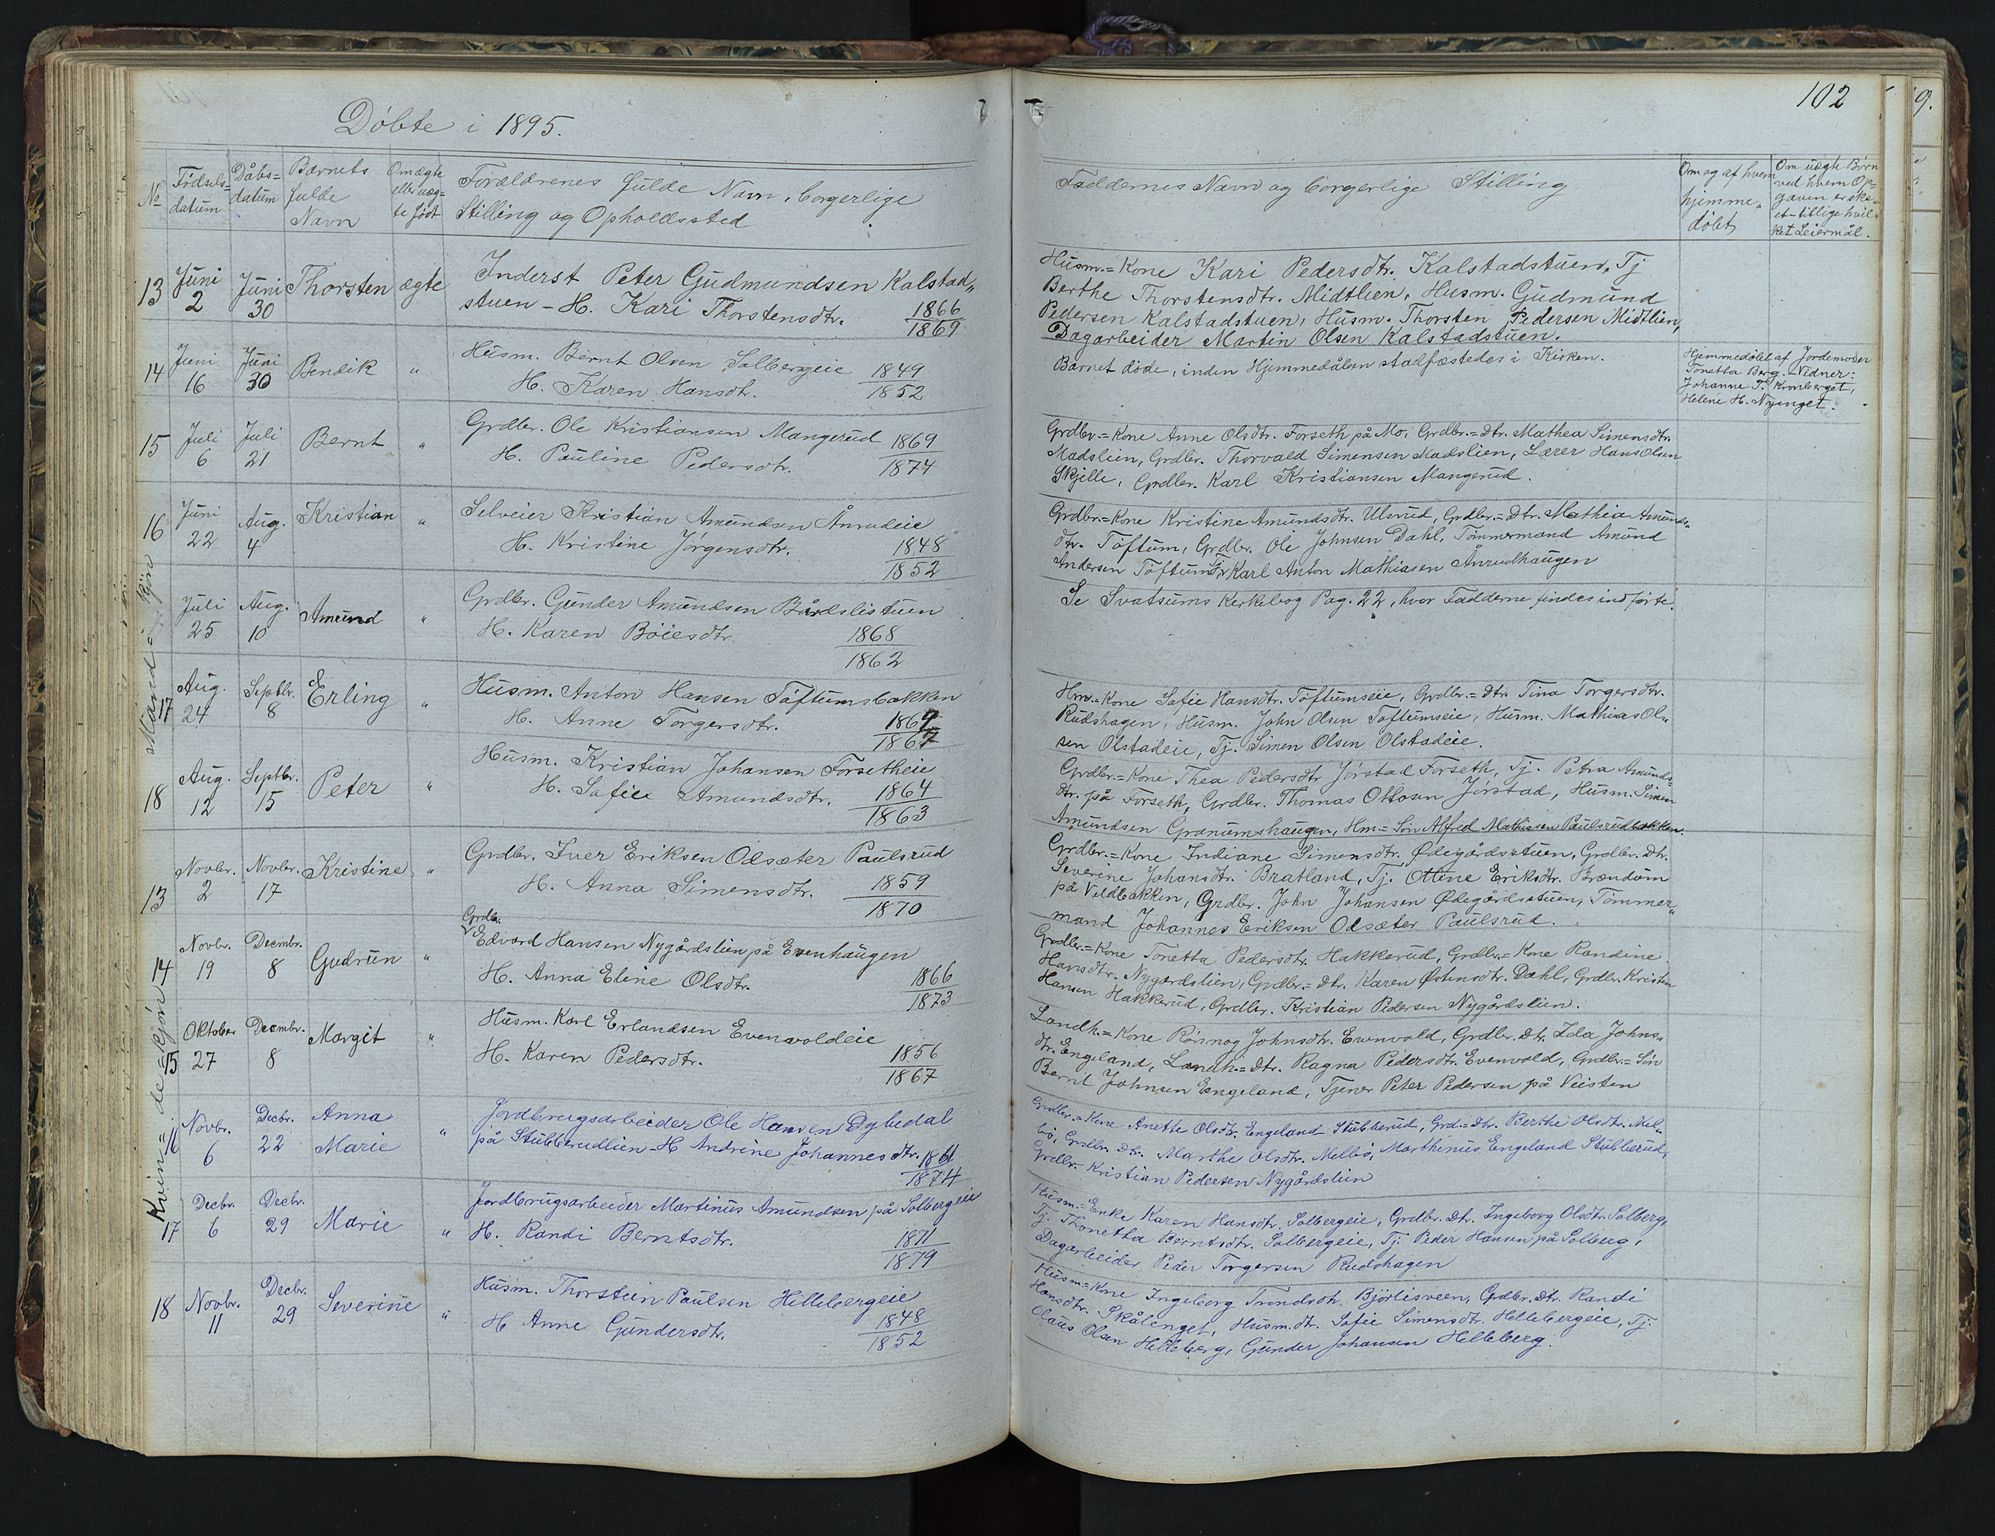 Døbte i 1895.
102
No
Fødsels-
datum
Dåbs-
datum
Barnets
fulde
Navn
Om ægte
eller uæg-
te født
Forældrenes fulde Navn, borgerlige
Stilling og Opholdssted
Faddernes Navn og borgerlige Stilling
Om og af hvem
hjemme-
døbt
Om uægte Børn
ved hvem Op-
gaven er ske-
et - tillige hvil-
ket Leiermål.
Mandkjøn
13 Juni 2 Juni 30 Thorsten ægte
Inderst Peter Gudmundsen Kalstad-
stuen - H. Kari Thorstensdtr. 1866
1869
Husm.=Kone Kari Pedersdtr. Kalstadstuen, Tj
Berthe Thorstensdtr. Midtlien, Husm. Gudmund
Pedersen Kalstadstuen, Husm. Thorsten Pedersen Midtlien,
Dagarbeider Martin Olsen Kalstadstuen.
14 Juni 16 Juni 30 Bendik "
Husm. Bernt Olsen Solbergeie 1849
H. Karen Hansdtr. 1852
Barnet døde, inden Hjemmedåben stadfæstedes i Kirken.
Hjemmedøbt af Jordemoder
Tonetta Berg. - Vidner:
Johanne T. Kronberget,
Helene H. Nyinget.
15 Juli 6 Juli 21 Bernt "
Grdbr. Ole Kristiansen Mangerud 1869
H. Pauline Pedersdtr. 1874
Grdbr.=Kone Anne Olsdtr. Forseth på Mo, Grdbr.=Dtr. Mathea Simensdtr.
Madslien, Grdbr. Thorvald Simensen Madslien, Lærer Hans Olsen
Skjelle, Grdbr. Karl Kristiansen Mangerud.
16 Juni 22 Aug. 4 Kristian "
Selveier Kristian Amundsen Ånrudeie
H. Kristine Jørgensdtr. 1848
1852
Grdbr.=Kone Kristine Amundsdtr. Ulsrud, Grdbr.=Dtr. Mathia Amunds-
dtr. Toftum, Grdbr. Ole Johnsen Dahl, Tømmermand Amund
Andersen Toftum, Tj. Karl Anton Mathiasen Ånrudhaugen
Juli 25 Aug. 10 Amund "
Grdbr. Gunder Amundsen Bårdslistuen
H. Karen Bøiesdtr. 1868
1862
Se Svatsums Kirkebog Pag. 22, hvor Fadderne findes indførte.
17 Aug. 24 Septbr. 8 Erling "
Husm. Anton Hansen Toftumsbakken
H. Anne Torgersdtr. 1869
1867
Hm.=Kone Sofie Hansdtr. Toftumseie, Grdbr.=Dtr. Tina Torgersdtr.
Rudshagen, Husm. John Olsen Toftumseie, Husm. Mathias Ol-
sen Olstadeie, Tj. Simen Olsen Olstadeie.
18 Aug. 12 Septbr. 15 Peter "
Husm. Kristian Johansen Forsetheie
H. Sofie Amundsdtr. 1864
1863
Grdbr.=Kone Thea Pedersdtr Jørstad Forseth, Tj. Petra Amunds-
dtr. på Forseth, Grdbr. Thomas Ottosen Jørstad, Husm. Simen
Amundsen Granumshaugen, Hm.=Søn Alfred Mathiasen Paulsrudbakken.
Kvindekjøn
13 Novbr. 2 Novbr. 17 Kristine "
Grdbr. Iver Eriksen Odsæter Paulsrud
H. Anna Simensdtr. 1859
1870
Grdbr.=Kone Indiane Simensdtr. Ødegårdsstuen, Grdbr. Dtr.
Severine Johansdtr. Bratland, Tj. Otline Eriksdtr. Brændom
på Voldbakken, Grdbr. John Johansen Ødegårdsstuen, Tømmer-
mand Johannes Eriksen Odsæter Paulsrud.
14 Novbr. 19 Decmbr. 8 Gudrun "
Grdbr.
Edvard Hansen Nygårdslien på Evenhaugen
H. Anna Eline Olsdtr. 1866
1873
Grdbr.=Kone Tonetta Pedersdtr. Hakkerud, Grdbr.=Kone Randine
Hansdtr. Nygårdslien, Grdbr.=Dtr. Karen Østensdtr. Dahl, Grdbr. Kristen
Hansen Hakkerud, Grdbr. Kristian Pedersen Nygårdslien.
15 Oktober 27 Decmbr. 8 Margit "
Husm. Karl Erlandsen Evenvoldeie
H. Karen Pedersdtr. 1856
1867
Landh.=Kone Rønnog Johnsdtr. Evenvold, Grdbr. Dtr. Ida Johns-
dtr. Engeland, Landh.=Dtr. Ragna Pedersdtr. Evenvold, Grdbr.=Søn
Bernt Johnsen Engeland, Tjener Peter Pedersen på Veisten
16 Novbr. 6 Decbr. 22 Anna Marie "
Jordbrugsarbeider Ole Hansen Dybedal
på Stubberudlien - H Andrine Johannesdtr. 1861
1874
Grdbr.=Kone Anette Olsdtr. Engeland Stubberud, Grd=Dtr. Berthe Olsdtr. Mel-
bø, Grdbr. Dtr. Marthe Olsdtr. Melbø, Marthinus Engeland Stubberud,
Grdbr. Kristian Pedersen Nygårdslien
17 Decbr. 6 Decbr. 29 Marie "
Jordbrugsarbeider Martinus Amundsen på Solbergeie
H. Randi Berntsdtr. 1871
1879
Husm.=Enke Karen Hansdtr. Solbergeie, Grdbr. Dtr. Ingeborg Olsdtr. Solberg,
Tj. Thonetta Berntsdtr. Solbergeie, Tj. Peder Hansen på Solberg,
Dagarbeider Peder Torgersen Rudshagen
18 Novbr. 11 Decbr. 29 Severine "
Husm. Thorstein Paulsen Hillebergeie
H Anne Gundersdtr. 1848
1852
Husm.=Kone Ingeborg Trondsdtr. Bjørlisveen, Grdbr. Dtr. Randi
Hansdtr. Skålinget, Husm. dtr. Sofie Simensdtr. Hillebergeie, Tj.
Olaus Olsen Hilleberg, Gunder Johansen Hilleberg.